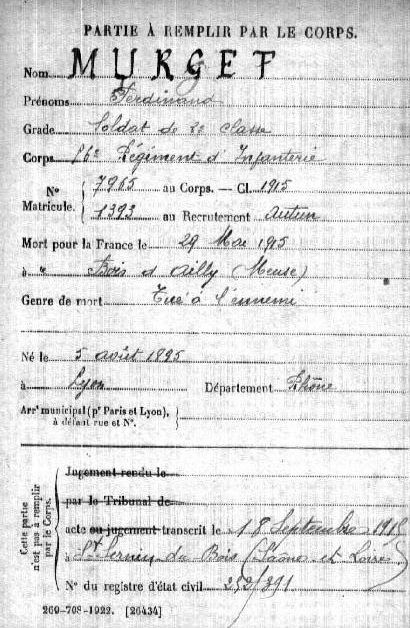 PARTIE À REMPLIR PAR LE CORPS.
Nom MURGET
Prénoms Ferdinand
Grade Soldat de 2e classe
Corps 56e Régiment d'Infanterie
N° Matricule. { 7965 au Corps. — Cl. 1915
1393 au Recrutement Autun
Mort pour la France le 29 Mai 1915
à Bois d'Ailly (Meuse)
Genre de mort Tué à l'ennemi
Né le 5 août 1895
à Lyon Département Rhône
Arrt municipal (pr Paris et Lyon), à défaut rue et N°.
Cette partie n'est pas à remplir par le Corps.
Jugement rendu le
par le Tribunal de
acte ou jugement transcrit le 18 Septembre 1915
à St Sernin du Bois (Saône et Loire)
N° du registre d'état civil 252/391
269-708-1922. [26434]